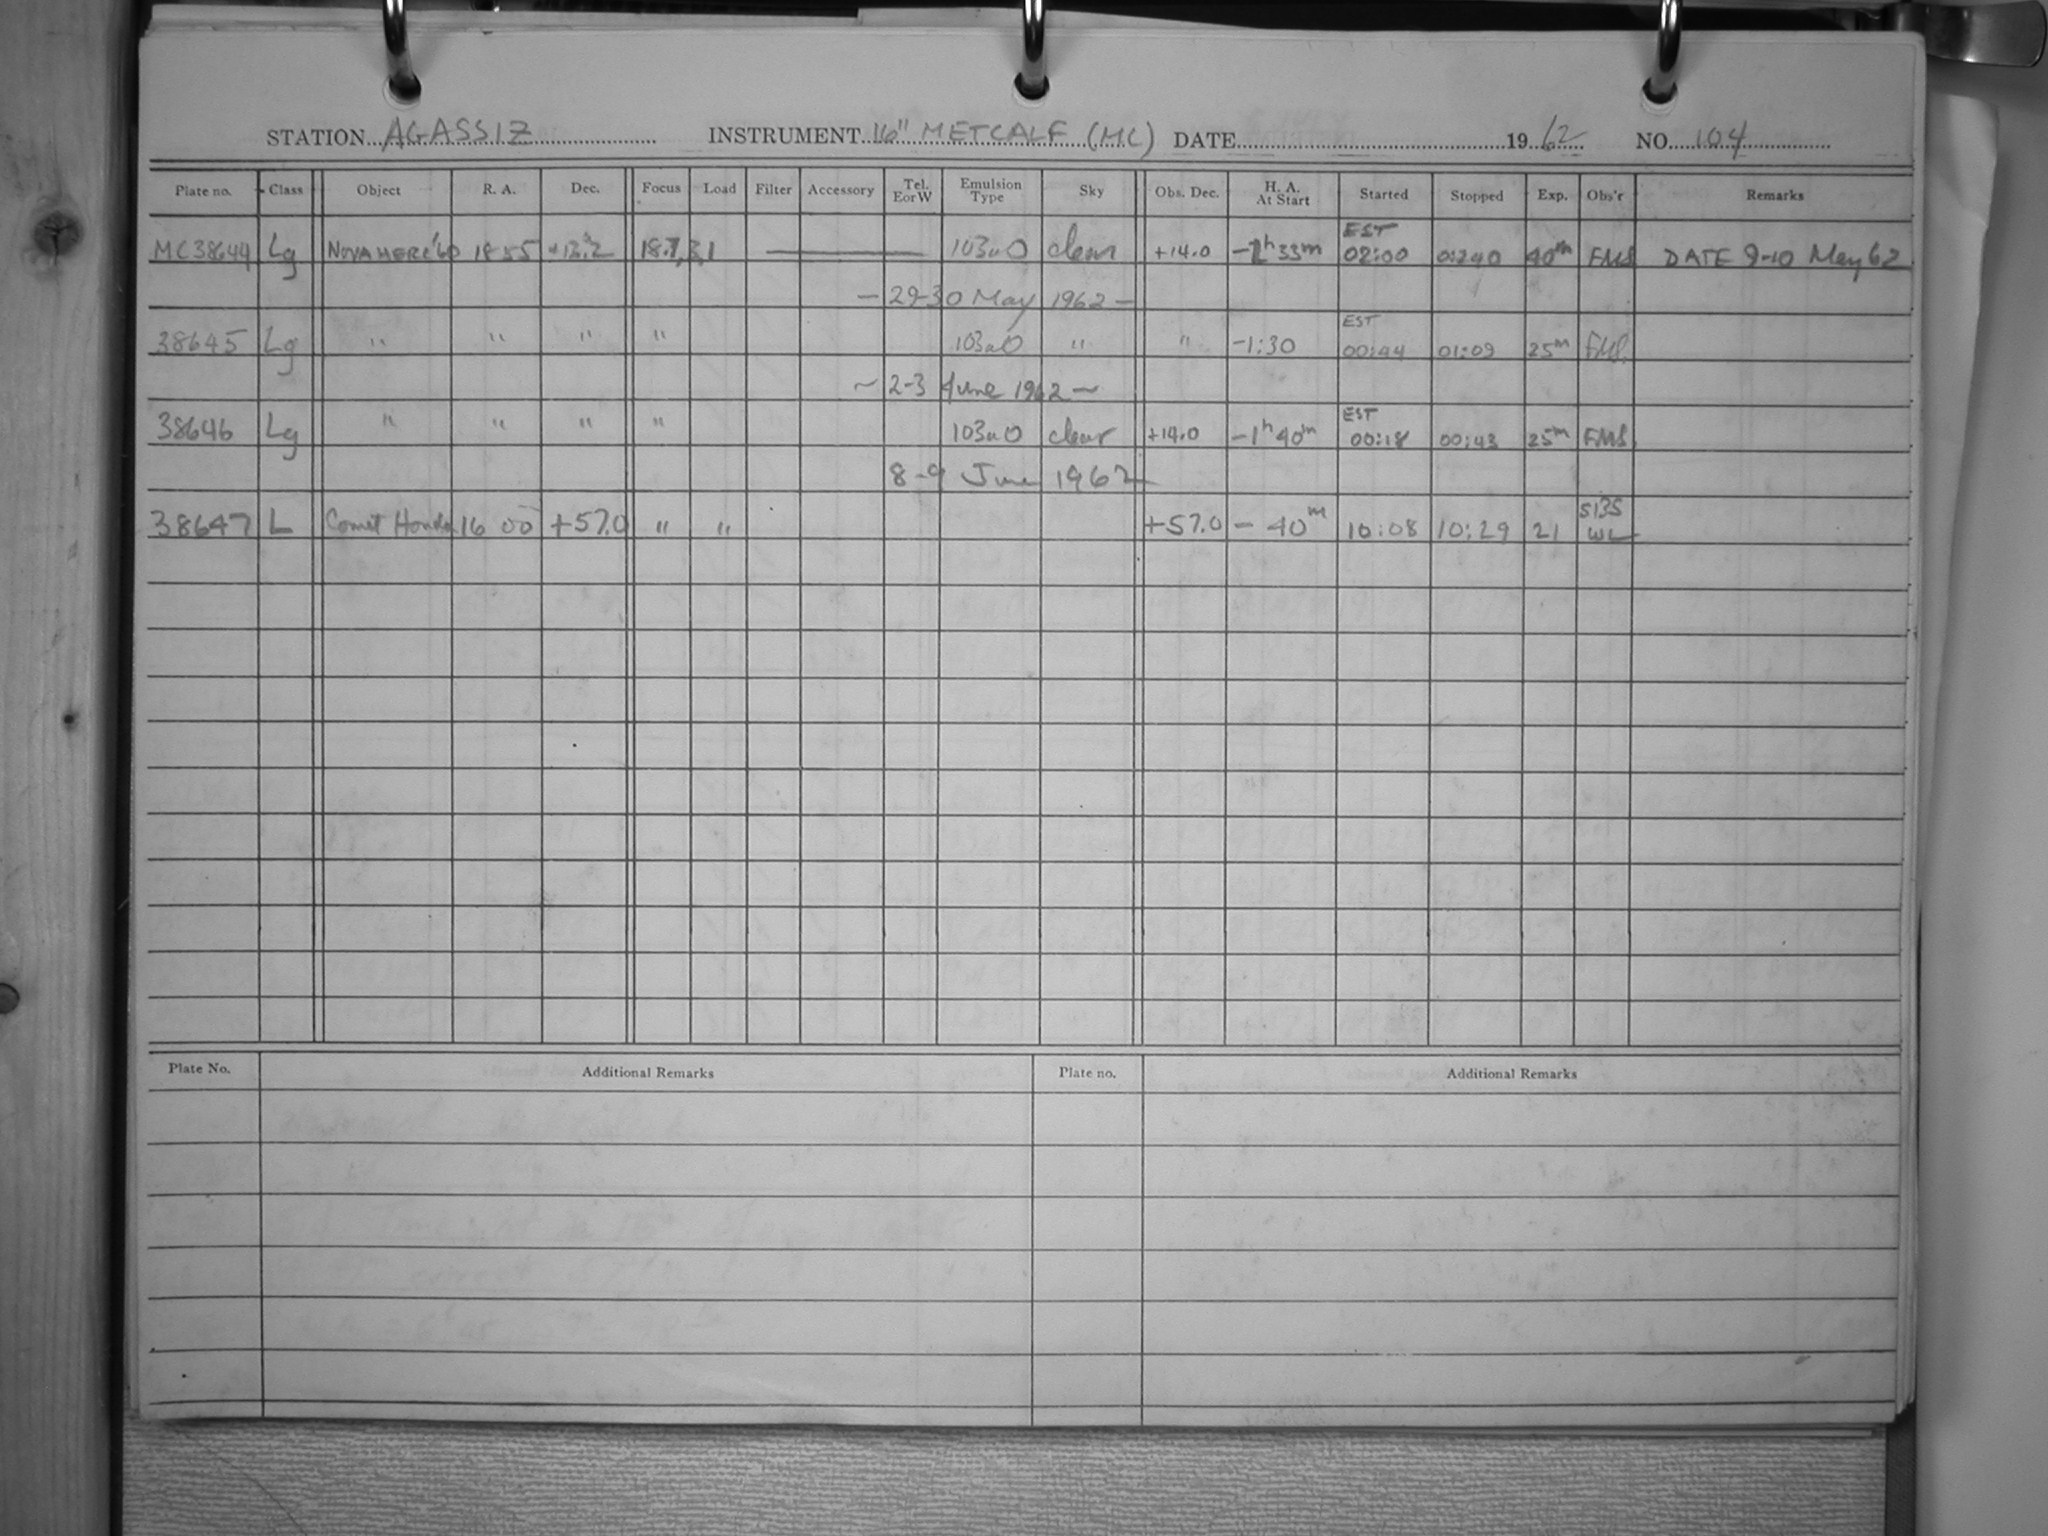 STATION AGASSIZ INSTRUMENT 16" METCALF (MC) DATE 1962 NO. 104
Plate no. Class Object R. A. Dec. Focus Load Filter Accessory Tel. E or W Emulsion Type Sky Obs. Dec. H. A. At Start Started Stopped Exp. Obs'r Remarks
MC38644 Lg NOVA HERC '60 1855 +13.2 18.7, 3,1 — 103aO clear +14.0 EST 02:00 0240 40m FMS DATE 9-10 May 62
— 29-30 May 1962 —
38645 Lg " " " " 103aO " " -1:30 EST 00:44 01:09 25m FMS
~ 2-3 June 1962 ~
38646 Lg " " " " 103aO clear +14.0 -1h 40m EST 00:18 00:43 25m FMS
8-9 June 1962
38647 L Comet Honda 16 00 +57.0 " " +57.0 - 40m 10:08 10:29 21 WL
Plate No. Additional Remarks Plate no. Additional Remarks